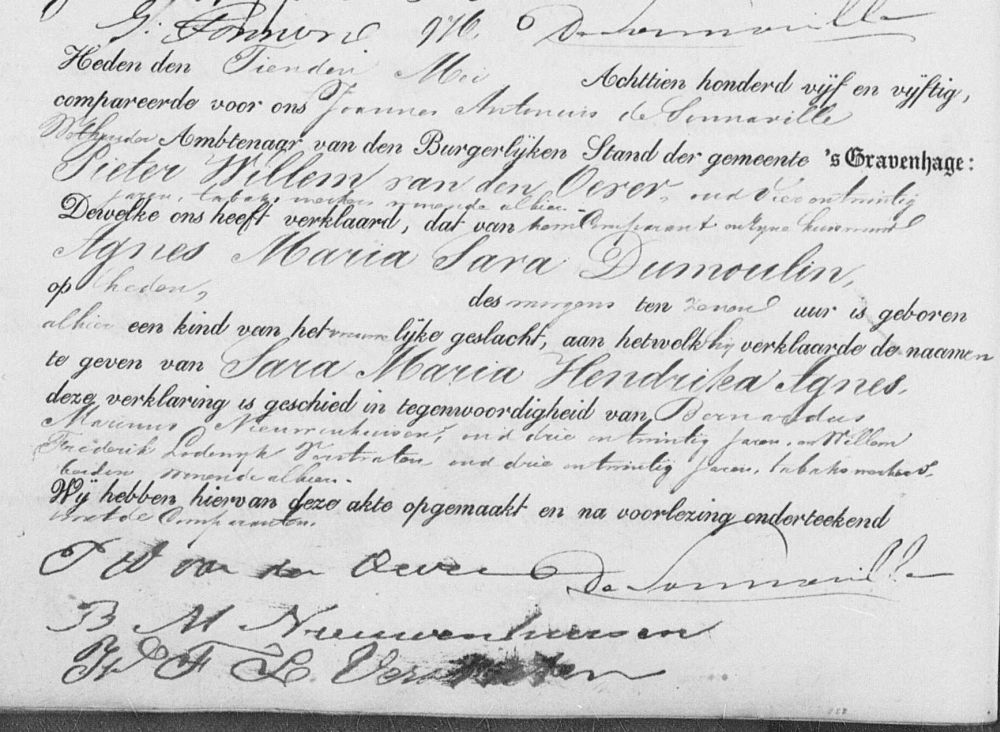 976. De Sonnaville
Heden den Tienden Mei Achttien honderd vijf en vijftig,
compareerde voor ons Joannes Antonius de Sonnaville
Wethouder Ambtenaar van den Burgerlijken Stand der gemeente 's Gravenhage:
Pieter Willem van den Oever, oud vier en twintig
jaren, tabakswerker wonende alhier.
Dewelke ons heeft verklaard, dat van hem Comparant en zijne huisvrouw
Agnes Maria Sara Dumoulin,
op heden, des morgens ten zeven uur is geboren
alhier een kind van het vrouwelijke geslacht, aan hetwelk hij verklaarde de naamen
te geven van Sara Maria Hendrika Agnes.
deze verklaring is geschied in tegenwoordigheid van Bernardus
Marinus Nieuwenhuisen, oud drie en twintig Jaren, en Willem
Frederik Lodewijk Verstraten oud drie en twintig Jaren, tabakswerkers
beiden wonende alhier.
Wij hebben hiervan deze akte opgemaakt en na voorlezing onderteekend
met de Comparanten.
P W van den Oever De Sonnaville
B M Nieuwenhuisen
W F L Verstraten